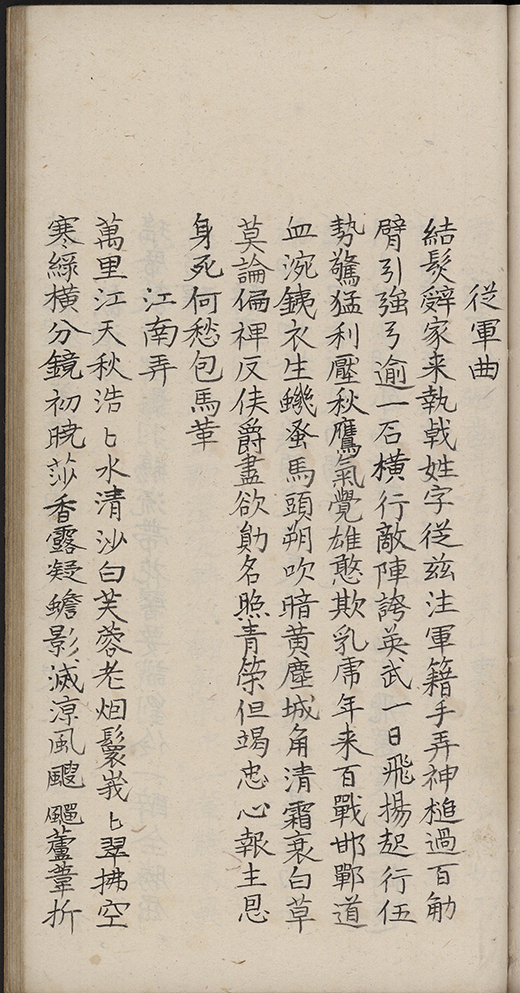 從軍曲
結髮辭家来執戟姓字從兹注軍籍手弄神槌過百觔
臂引強弓逾一石横行敵陣誇英武一日飛揚起行伍
勢驚猛利壓秋鷹氣覺雄憨欺乳虎年来百戰邯鄲道
血涴鉄衣生蟣蚤馬頭朔吹暗黄塵城角清霜衰白草
莫論偏裨及侯爵盡欲勛名照青榮但竭忠心報主恩
身死何愁包馬革
江南弄
萬里江天秋浩〻水清沙白芙蓉老烟鬟峩〻翠拂空
寒緑横分鏡初曉莎香露凝蟾影滅涼風颼颼蘆葦折